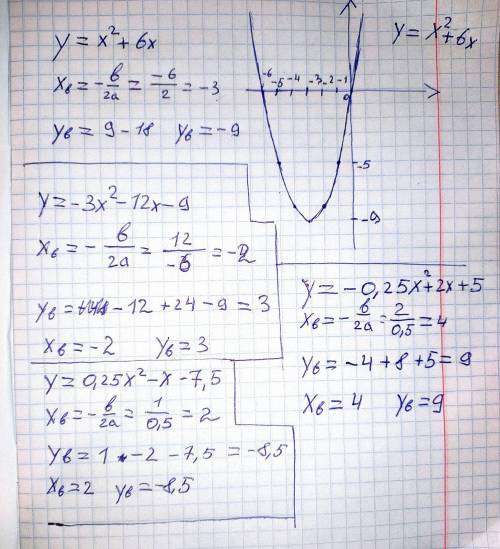 y = x² + 6x
xв = -в/2a = -6/2 = -3
yв = 9 - 18 yв = -9
y = x² + 6x
-6 -5 -4 -3 -2 -1
0
-5
-9
y = -3x² - 12x - 9
xв = -в/2a = 12/-6 = -2
yв = -12 + 24 - 9 = 3
xв = -2 yв = 3
y = 0,25x² - x - 7,5
xв = -в/2a = 1/0,5 = 2
yв = 1 - 2 - 7,5 = -8,5
xв = 2 yв = -8,5
y = -0,25x² + 2x + 5
xв = -в/2a = 2/0,5 = 4
yв = -4 + 8 + 5 = 9
xв = 4 yв = 9